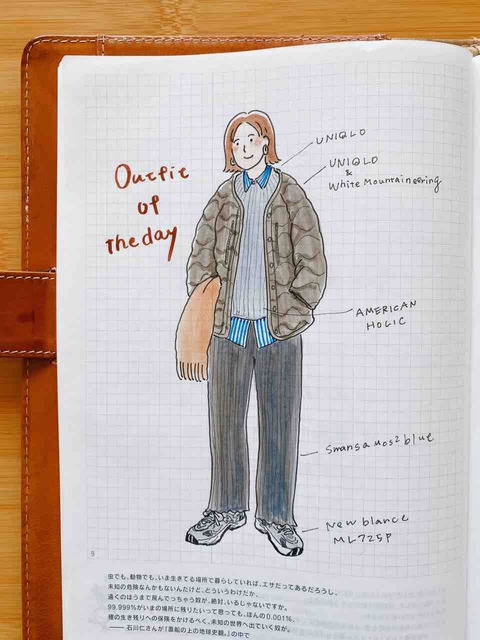 Outfit
of
the day
UNIQLO
UNIQLO
&
White Mountaineering
AMERICAN
HOLIC
Smansa mos2 blue
New blance
ML725P
9
虫でも、動物でも、いま生きてる場所で暮らしていれば、エサだってあるだろうし、
未知の危険なんかもないんだけど、どういうわけだか、
遠くのほうまで飛んでっちゃう奴が、絶対、いるじゃないですか。
99.999%がいまの場所に残りたいって思っても、ほんの0.001%、
種の生き残りへの保険をかけるべく、未知の世界へ出ていく奴が。
—— 石川仁さんが『葦船の上の地球史観。』の中で